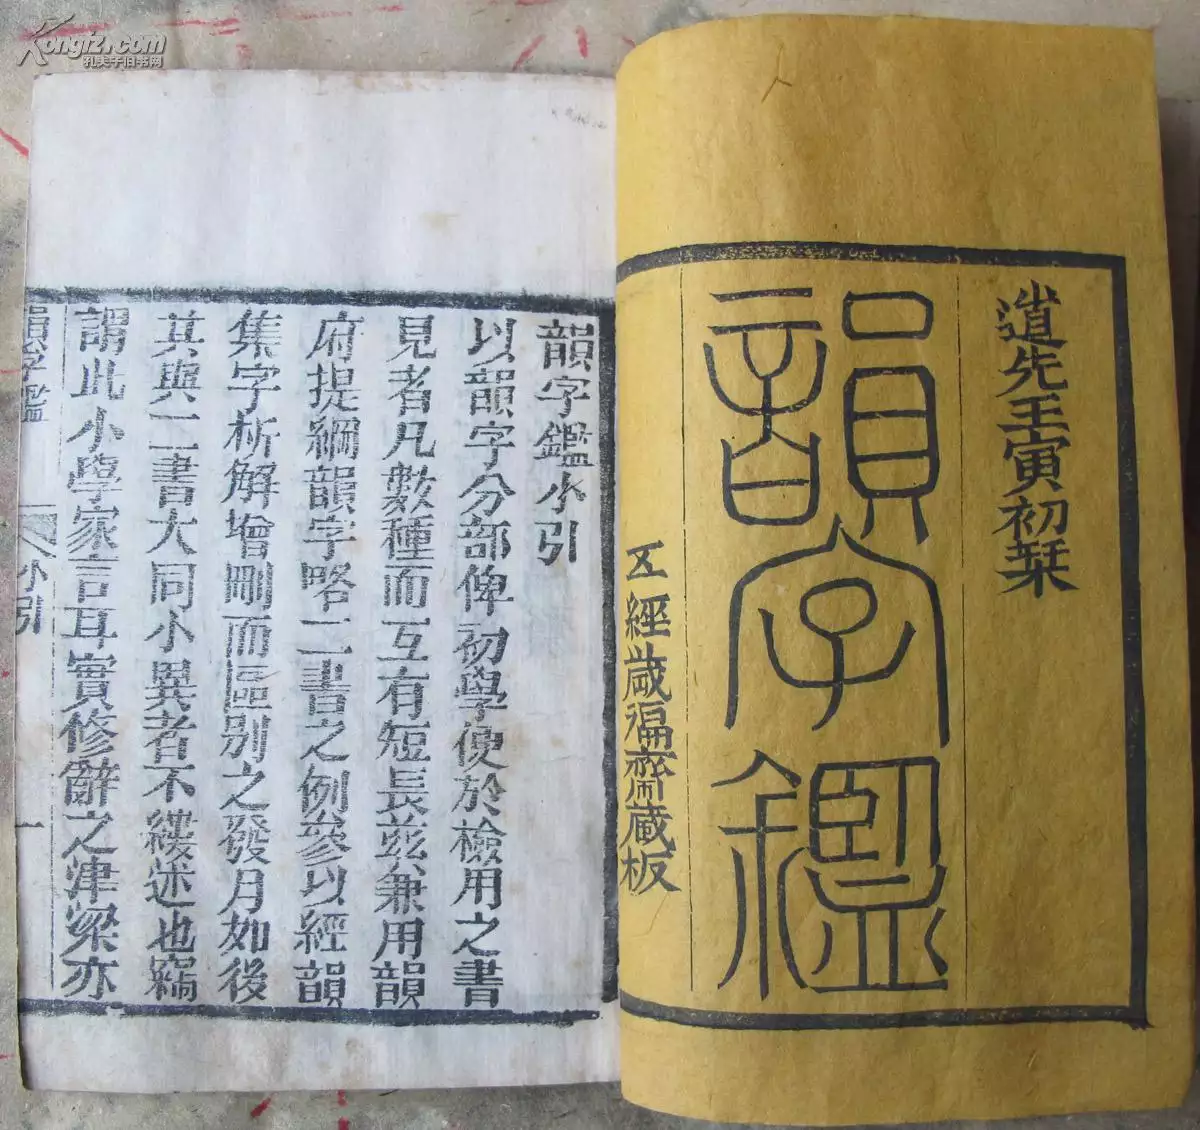 道光壬寅初栞
韻字鑑
五經歲徧齋藏板
韻字鑑小引
以韻字分部俾初學便於檢用之書
見者凡數種而互有短長茲兼用韻
府提綱韻字略二書之例參以經韻
集字析解增刪而區別之發月如後
其與二書大同小異者不縷述也竊
謂此小學家言耳實修辭之津梁亦
韻字鑑 小引 一
Kongfz.com
孔夫子旧书网